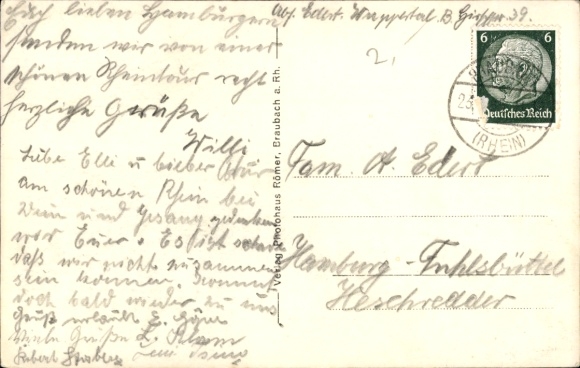 Euch lieben Hamburgern
senden wir von einer
schönen Rheintour recht
herzliche Grüße
Willi
Liebe Elli u lieber
am schönen Rhein bei
Wein und Gesang gedenken
wir Euer. Es ist schade
daß wir nicht zusammen
sein können kommt
doch bald wieder zu uns
Gruß
Viele Grüße
Abs. Edert. Wuppertal. B 39.
2,
Verlag Photohaus Römer, Braubach a. Rh.
6 6
Deutsches Reich
23
(RHEIN)
Fam. A. Edert
Hamburg-Fuhlsbüttel
Heschredder